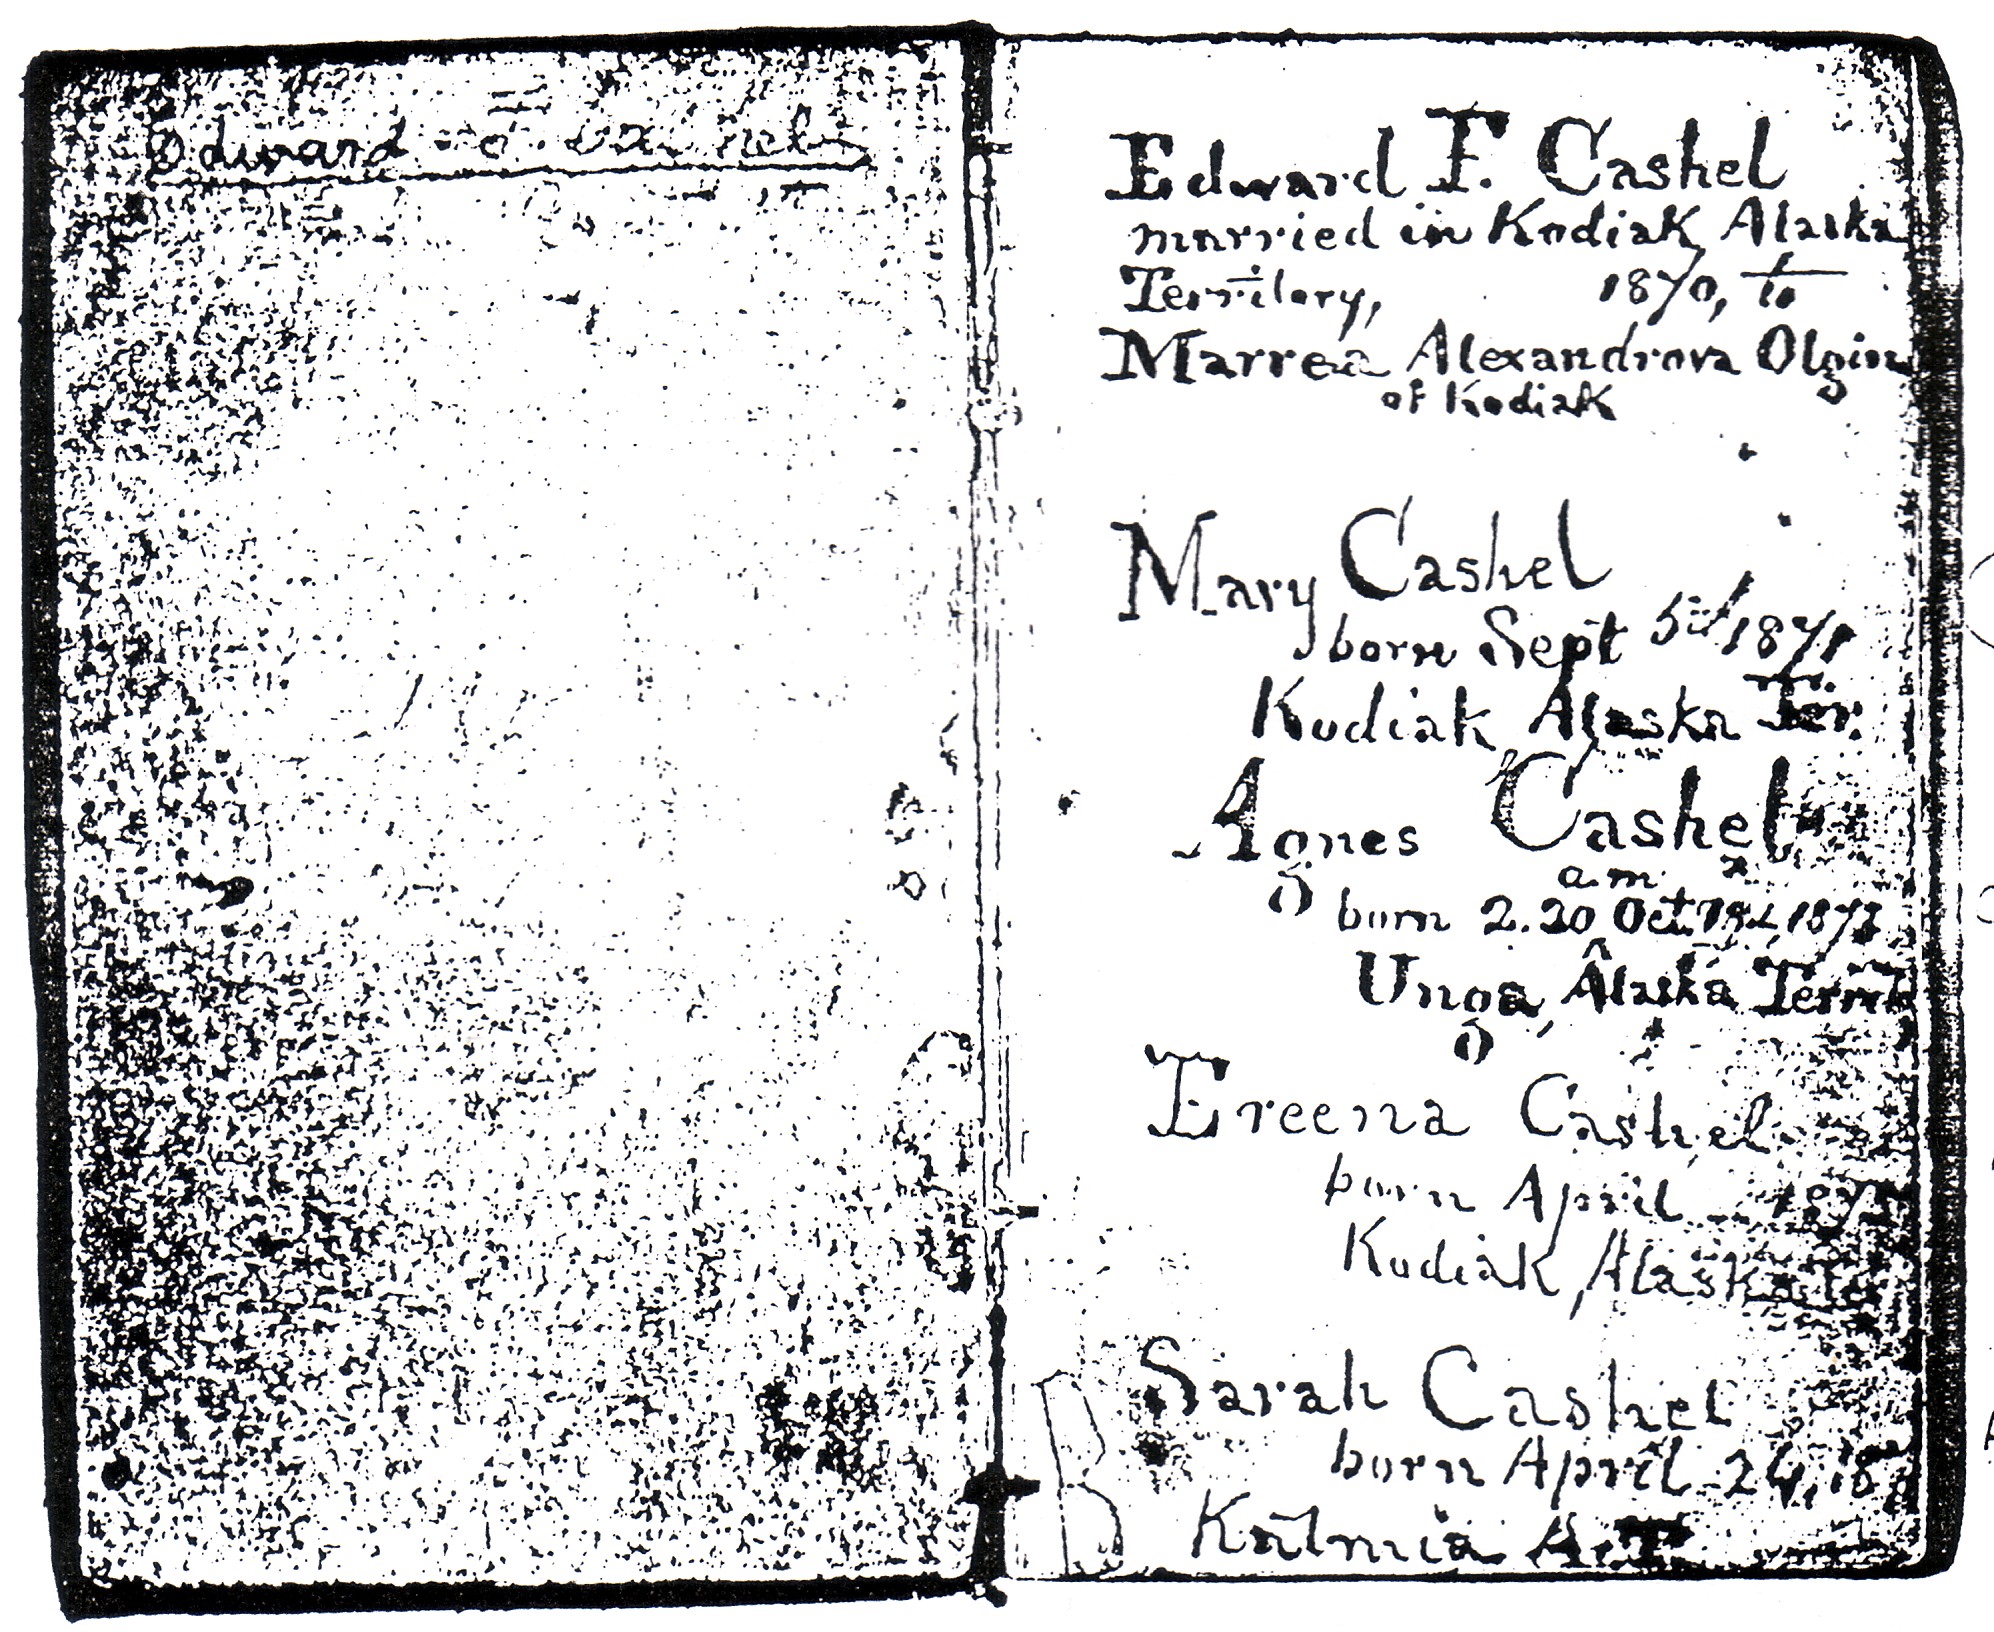 Edward
Edward F. Cashel
married in Kodiak, Alaska
Territory, 1870, to
Marrea Alexandrova Olgin
of Kodiak
Mary Cashel
born Sept 5th 1871
Kodiak, Alaska Ter.
Agnes Cashel
a.m.
born 2.20 Oct. 1873
Unga, Alaska Territ
Ereena Cashel
born April 187
Kodiak, Alaska Ter
Sarah Cashel
born April 24, 18
Katmia A.T.